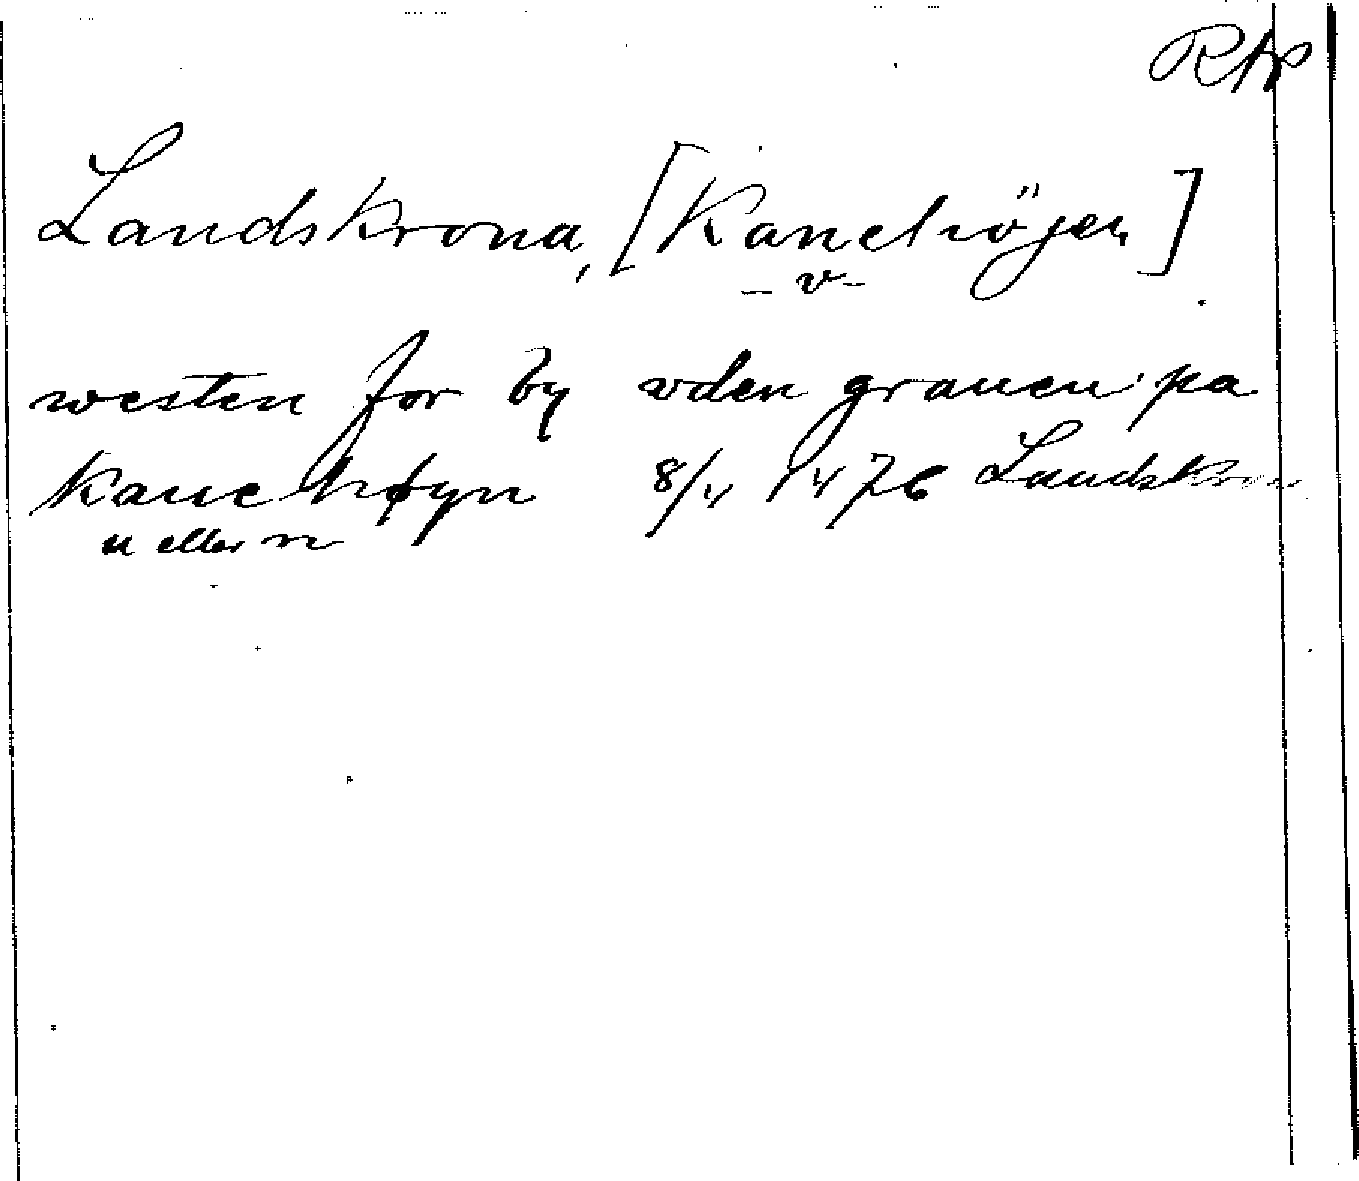 RAp
Landskrona, [Kanehöjen]
- v -
westen for by vden grauen pa
Kane høyn 8/4 1476 Landskron
u eller n